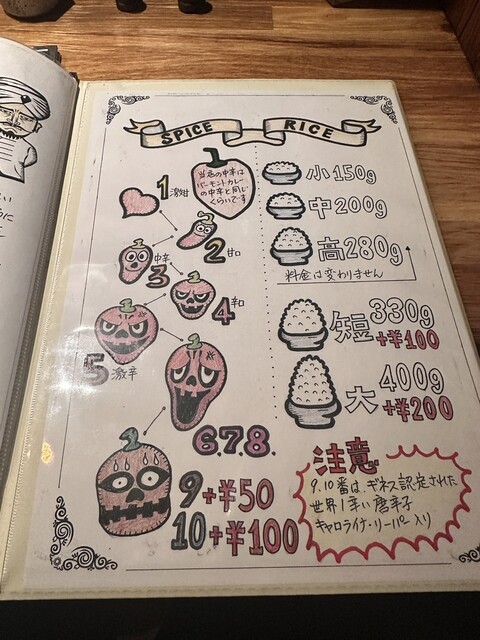 SPICE RICE
1 激甘
当店の中辛は
バーモントカレー
の中辛と同じ
くらいです
2 甘口
3 中辛
4 辛口
5 激辛
6.7.8.
9+¥50
10+¥100
小150g
中200g
高280g
料金は変わりません
短330g
+¥100
大400g
+¥200
注意
9.10番は、ギネス認定された
世界1辛い唐辛子
キャロライナ・リーパー入り